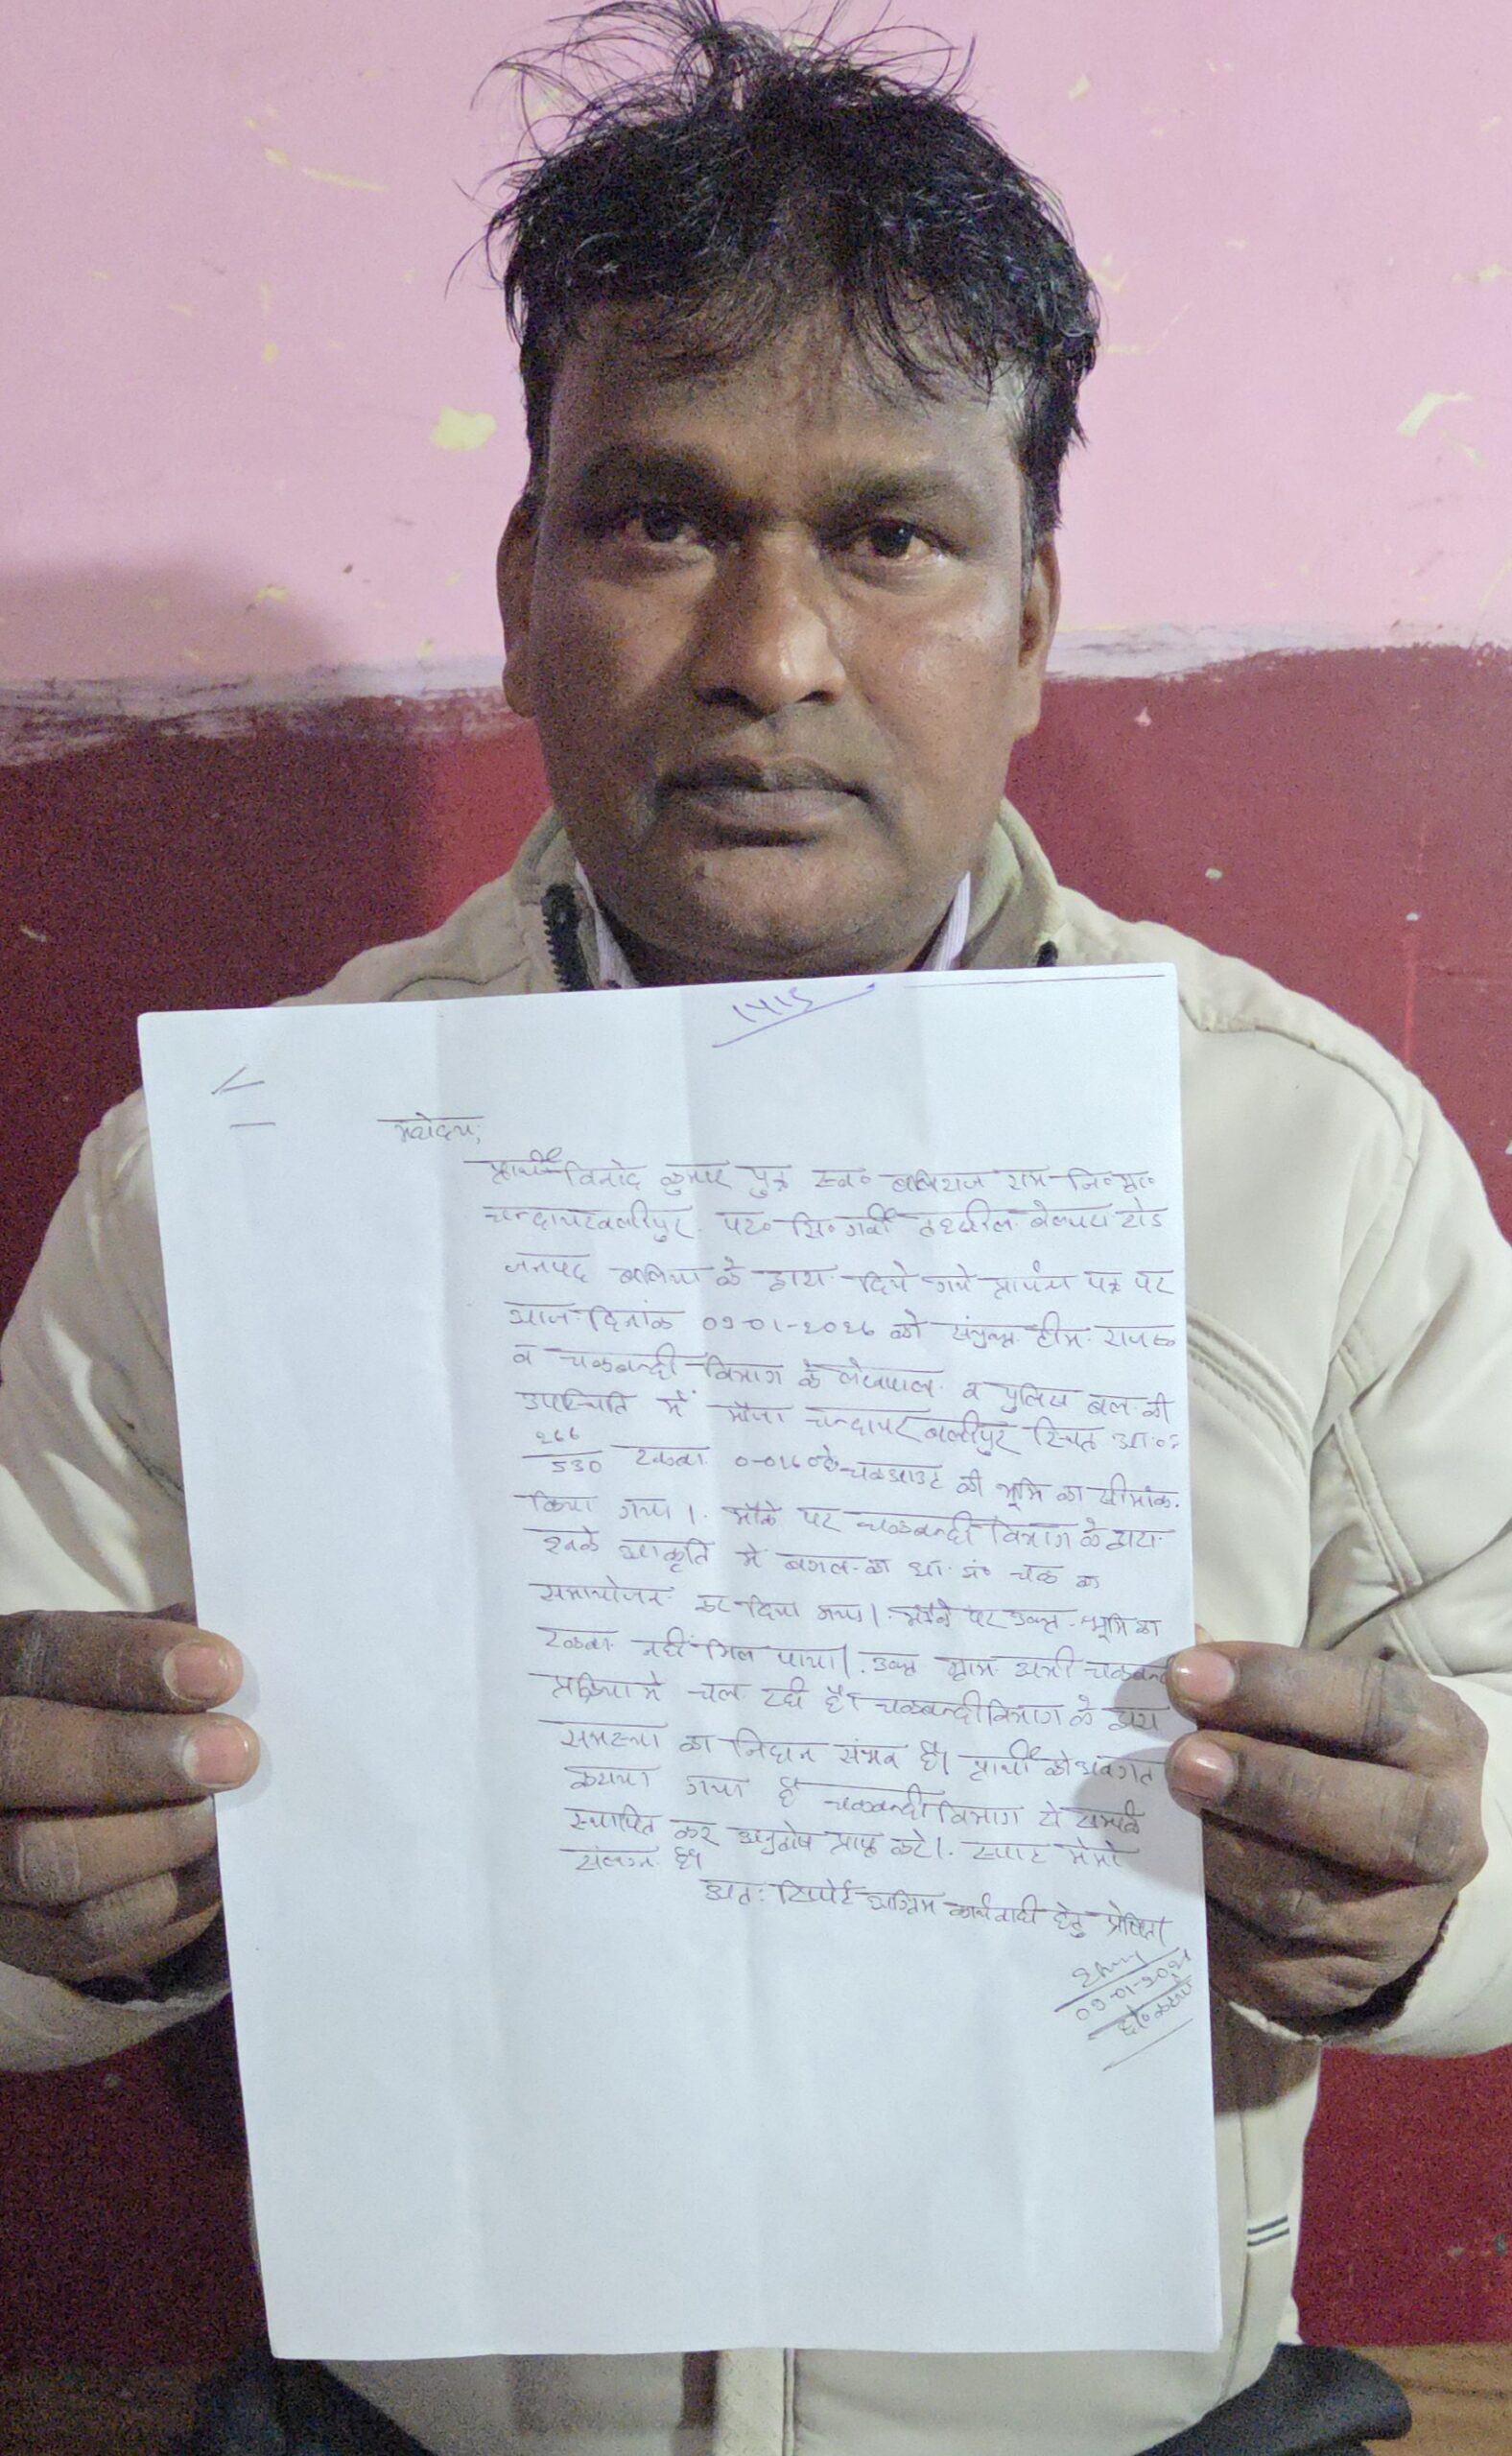 महोदय,
प्रार्थी विनोद कुमार पुत्र स्व० बलिराज राम नि० ग्रा०
चन्दायरबलीपुर पर० सि० गर्वी तहसील बेल्थरा रोड
जनपद बलिया के द्वारा दिये गये प्रार्थना पत्र पर
आज दिनांक 09-01-2026 को संयुक्त टीम राजस्व
व चकबन्दी विभाग के लेखपाल व पुलिस बल की
उपस्थिति में मौजा चन्दायर बलीपुर स्थित आ०
266
530 रकबा 0-016 हे० चकआउट की भूमि का सीमांकन
किया गया। मौके पर चकबन्दी विभाग के द्वारा
इनके आकृति में बगल का आ० सं० चक का
समायोजन कर दिया गया। मौके पर उक्त भूमि का
रकबा नहीं मिल पाया। उक्त ग्राम अभी चकबन्दी
प्रक्रिया में चल रही है। चकबन्दी विभाग के द्वारा
समस्या का निदान संभव है। प्रार्थी को अवगत
कराया गया है चकबन्दी विभाग से सम्पर्क
स्थापित कर अनुतोष प्राप्त करे। स्पाट मेमो
संलग्न है।
अतः रिपोर्ट अग्रिम कार्यवाही हेतु प्रेषित।
09-01-2026